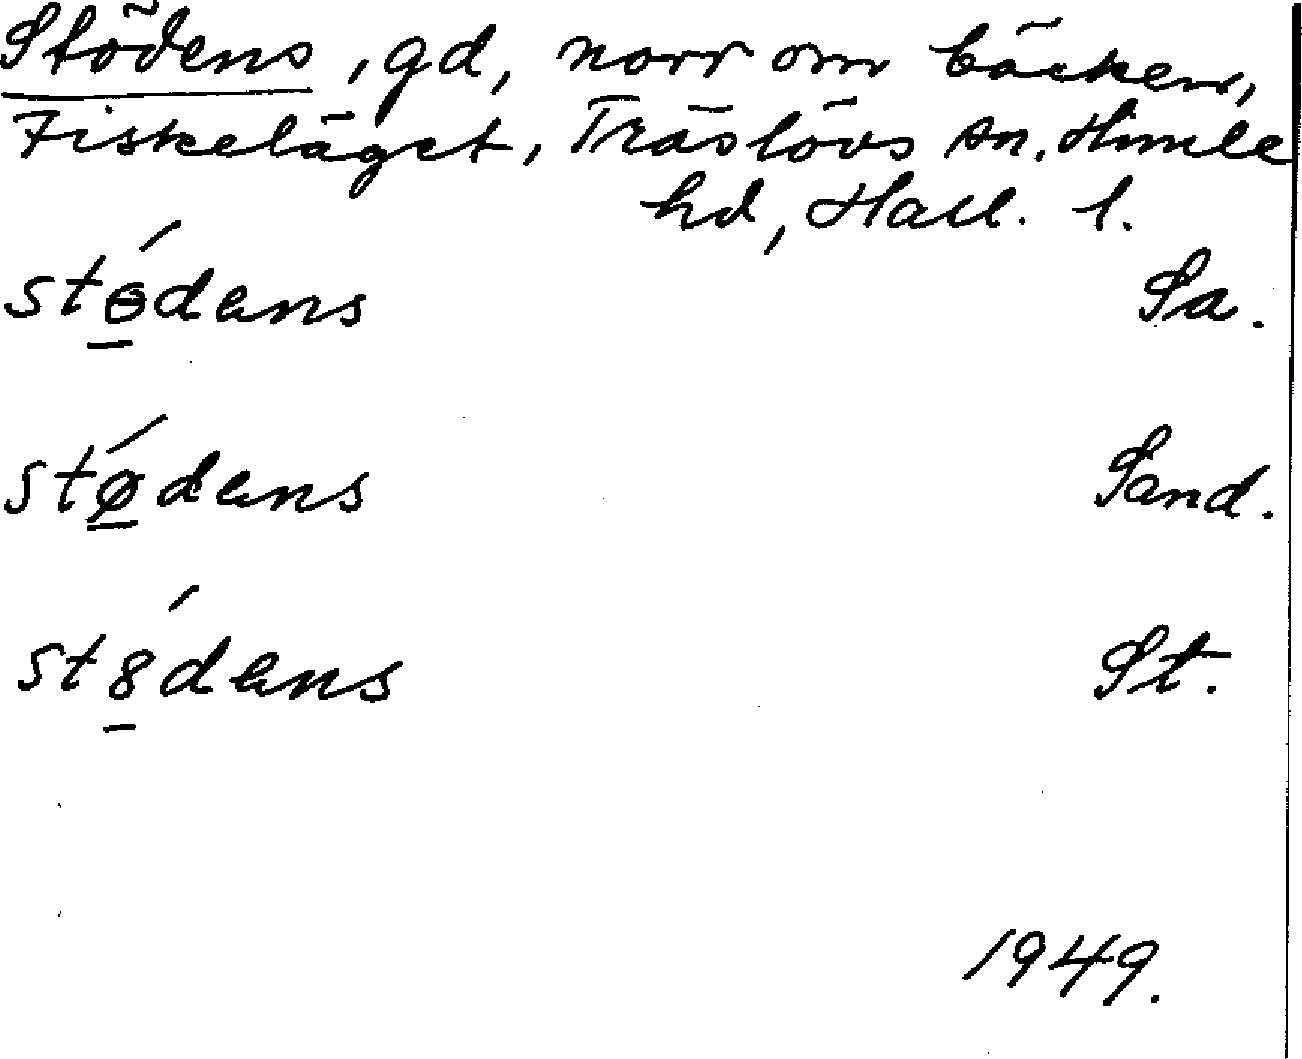 Stödens, gd, norr om bäcken,
Fiskeläget, Träslövs sn. Himle
hd, Hall. l.
stɵ́dens Sa.
stǿdens Sand.
st8́dens St.
1949.